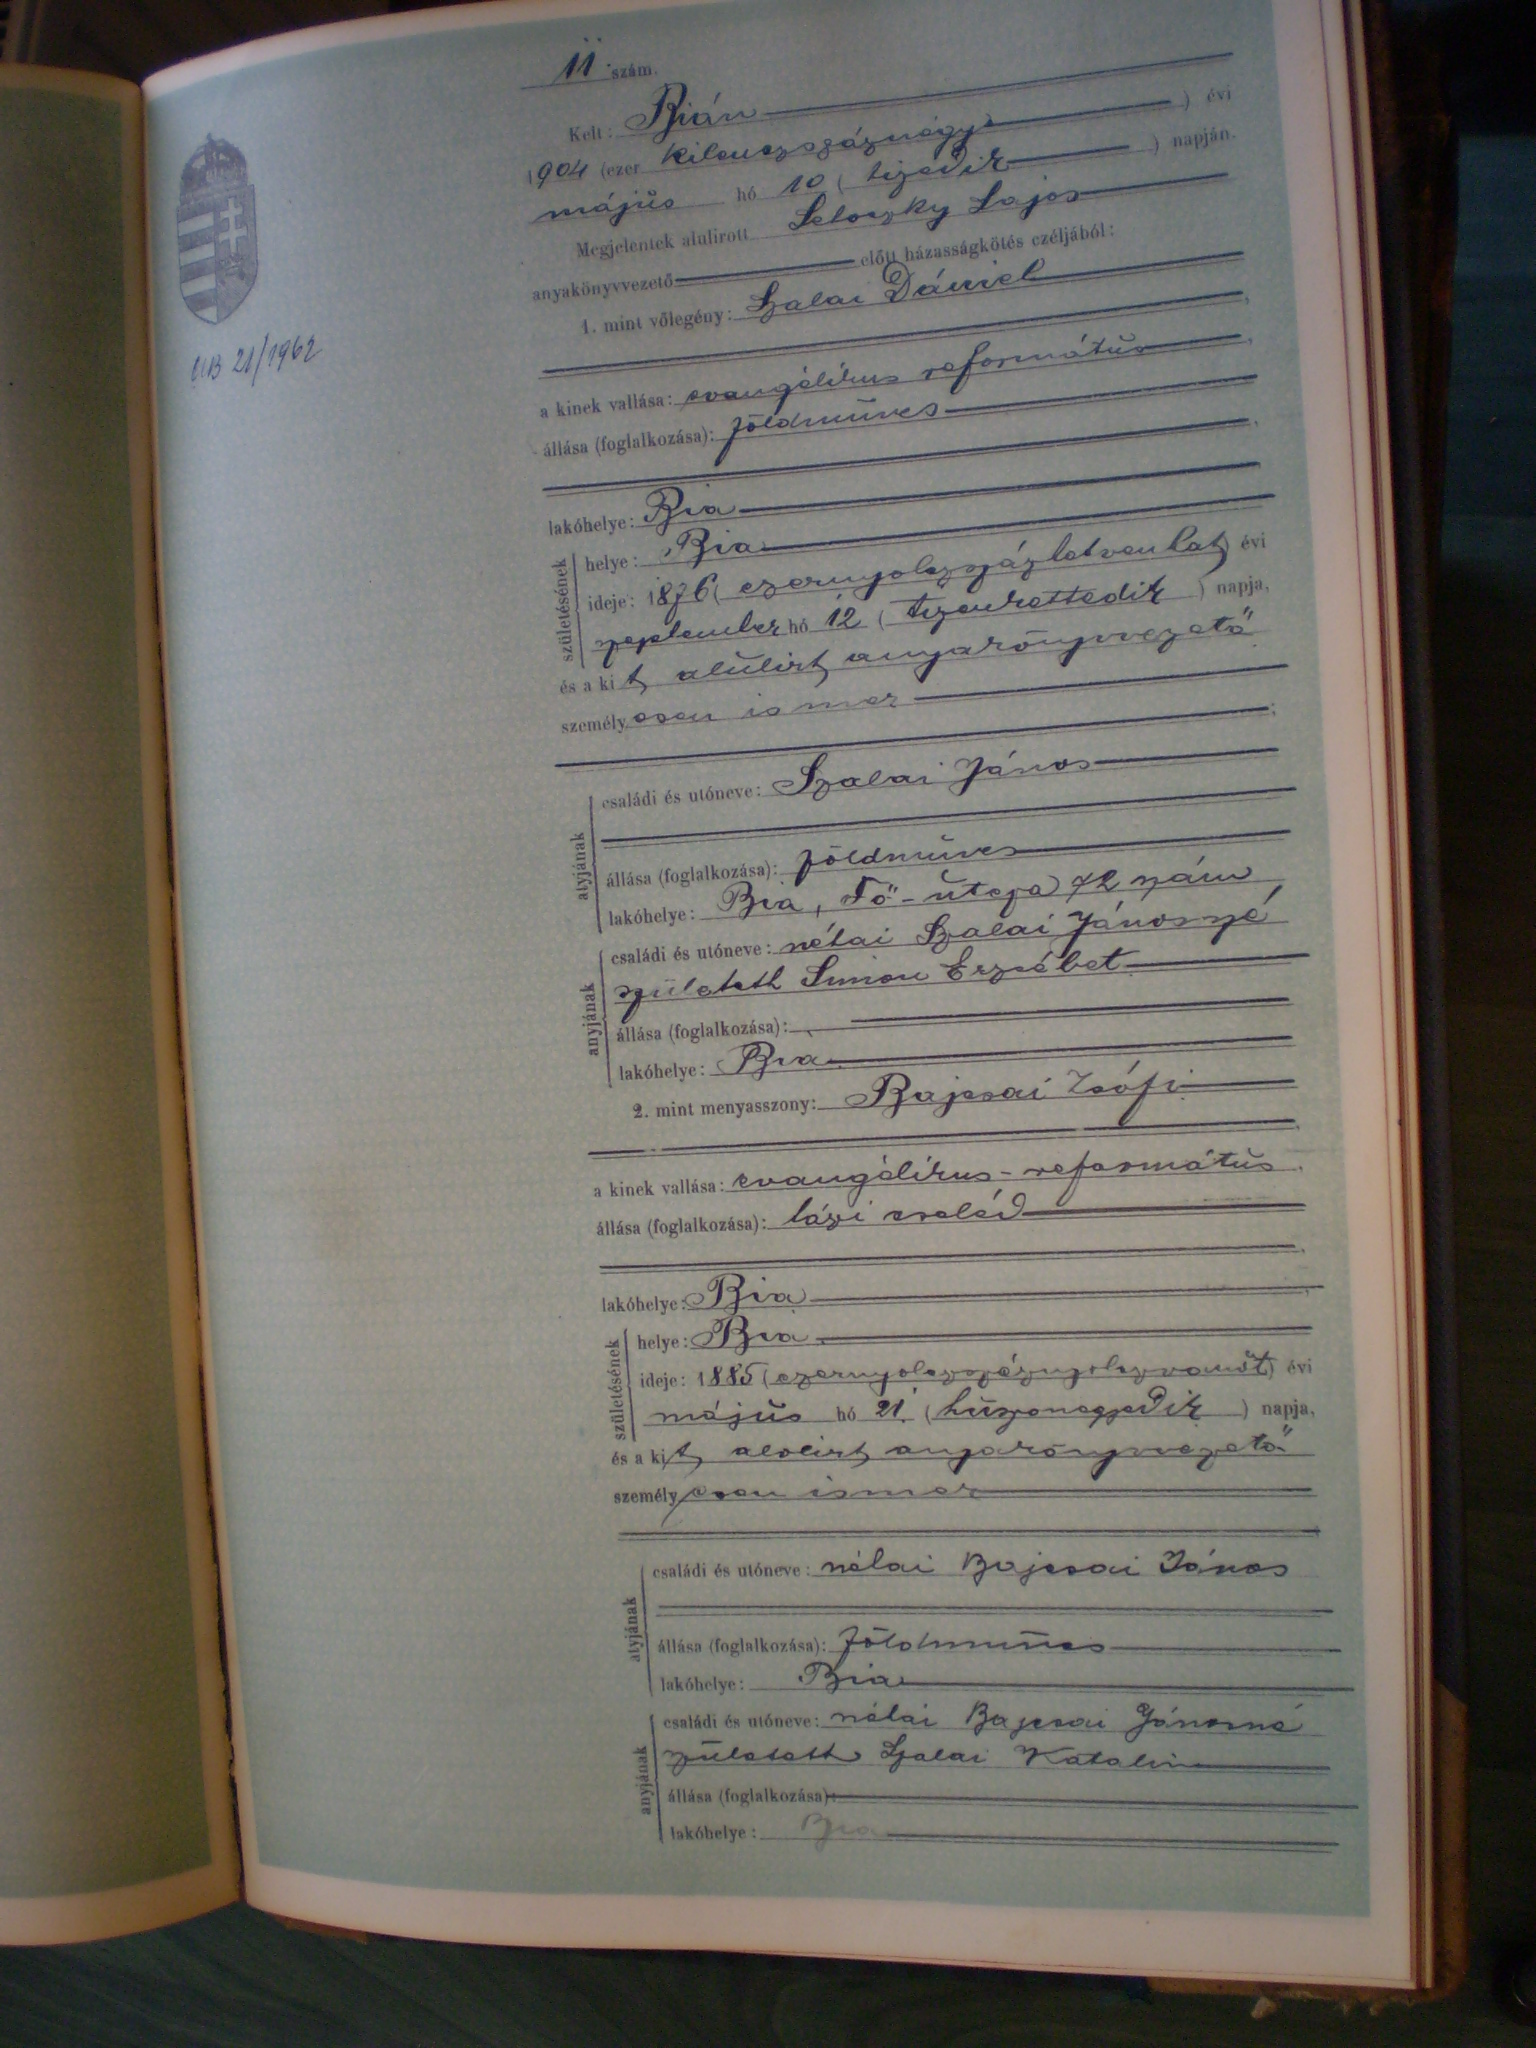 11 szám.
Kelt: Bián
1904 (ezer kilenczszáznégy) évi
május hó 10 (tizedik) napján.
Megjelentek alulirott Lajos
anyakönyvvezető előtt házasságkötés czéljából:
1. mint vőlegény: Szalai Dániel
21/1962
a kinek vallása: evangélikus református
állása (foglalkozása): földműves
lakóhelye: Bia
születésének
helye: Bia
ideje: 1876 (ezernyolczszázhetvenhat) évi
szeptember hó 12 (tizenkettedik) napja,
és a kit alulirt anyakönyvvezető
személyesen ismer
atyjának
családi és utóneve: Szalai János
állása (foglalkozása): földműves
lakóhelye: Bia, Fő-utcza 72 szám
anyjának
családi és utóneve: néhai Szalai Jánosné
született Simon Erzsébet
állása (foglalkozása):
lakóhelye: Bia
2. mint menyasszony: Bajcsai Zsófi
a kinek vallása: evangélikus-református
állása (foglalkozása): házi cseléd
lakóhelye: Bia
születésének
helye: Bia
ideje: 1885 (ezernyolczszáznyolczvanöt) évi
május hó 21. (huszonegyedik) napja,
és a kit alolirt anyakönyvvezető
személyesen ismer
atyjának
családi és utóneve: néhai Bajcsai János
állása (foglalkozása): földműves
lakóhelye: Bia
anyjának
családi és utóneve: néhai Bajcsai Jánosné
született Szalai Katalin
állása (foglalkozása):
lakóhelye: Bia